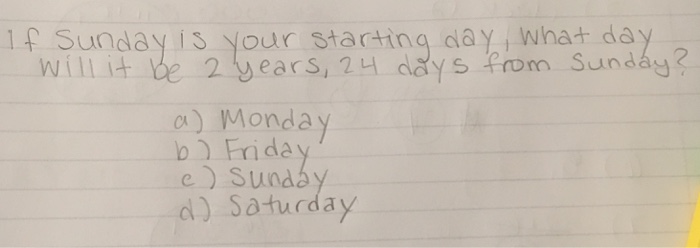 If Sunday is your starting day, what day
will it be 2 years, 24 days from Sunday?
a) Monday
b) Friday
c) Sunday
d) Saturday